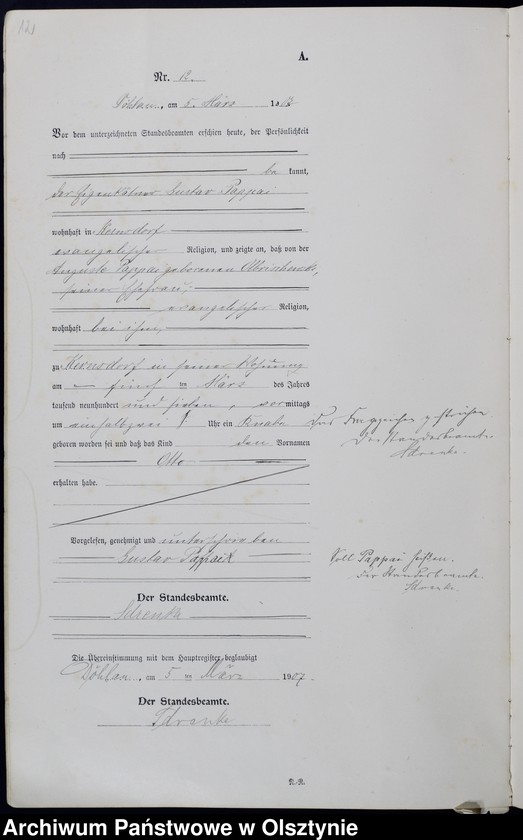 A.
Nr. 12.
Döhlau, am 5. März 1907
Vor dem unterzeichneten Standesbeamten erschien heute, der Persönlichkeit
nach
be kannt,
der Eigentümer Gustav Pappai
wohnhaft in Kernsdorf
evangelischer Religion, und zeigte an, daß von der
Auguste Pappai geborenen
seiner Ehefrau,
evangelischer Religion,
wohnhaft bei ihm,
zu Kernsdorf in seiner Wohnung
am fünf ten März des Jahres
tausend neunhundert und sieben, vormittags
um einhalbzwei Uhr ein Knabe
geboren worden sei und daß das Kind den Vornamen
Otto
erhalten habe.
Das Fragezeichen gestrichen.
Der Standesbeamte.
Vorgelesen, genehmigt und unterschrieben
Gustav Pappai
Soll Pappai heißen.
Der Standesbeamte.
Der Standesbeamte.
Die Übereinstimmung mit dem Hauptregister beglaubigt
Döhlau, am 5 ten März 1907.
Der Standesbeamte.
Archiwum Państwowe w Olsztynie